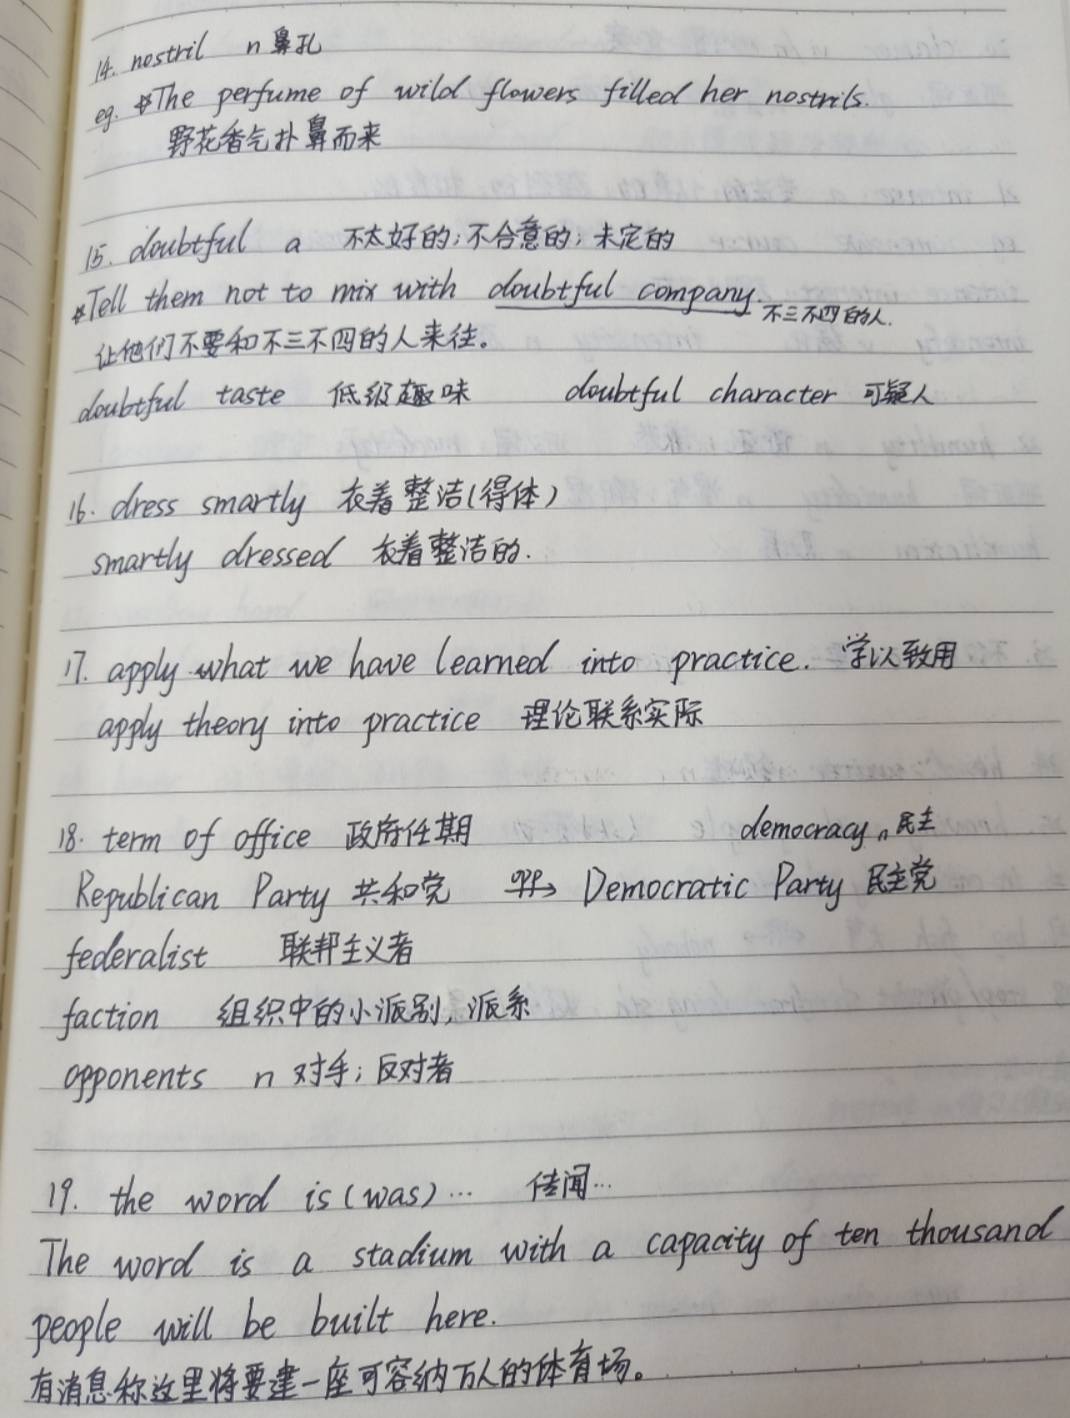 14. nostril n 鼻孔
eg. *The perfume of wild flowers filled her nostrils.
野花香气扑鼻而来
15. doubtful a 不太好的；不合意的；未定的
*Tell them not to mix with doubtful company. 不三不四的人.
让他们不要和不三不四的人来往。
doubtful taste 低级趣味 doubtful character 可疑人
16. dress smartly 衣着整洁(得体)
smartly dressed 衣着整洁的.
17. apply what we have learned into practice. 学以致用
apply theory into practice 理论联系实际
18. term of office 政府任期 democracy n 民主
Republican Party 共和党 opp→ Democratic Party 民主党
federalist 联邦主义者
faction 组织中的小派别, 派系
opponents n 对手; 反对者
19. the word is (was)... 传闻...
The word is a stadium with a capacity of ten thousand
people will be built here.
有消息称这里将要建一座可容纳万人的体育场。